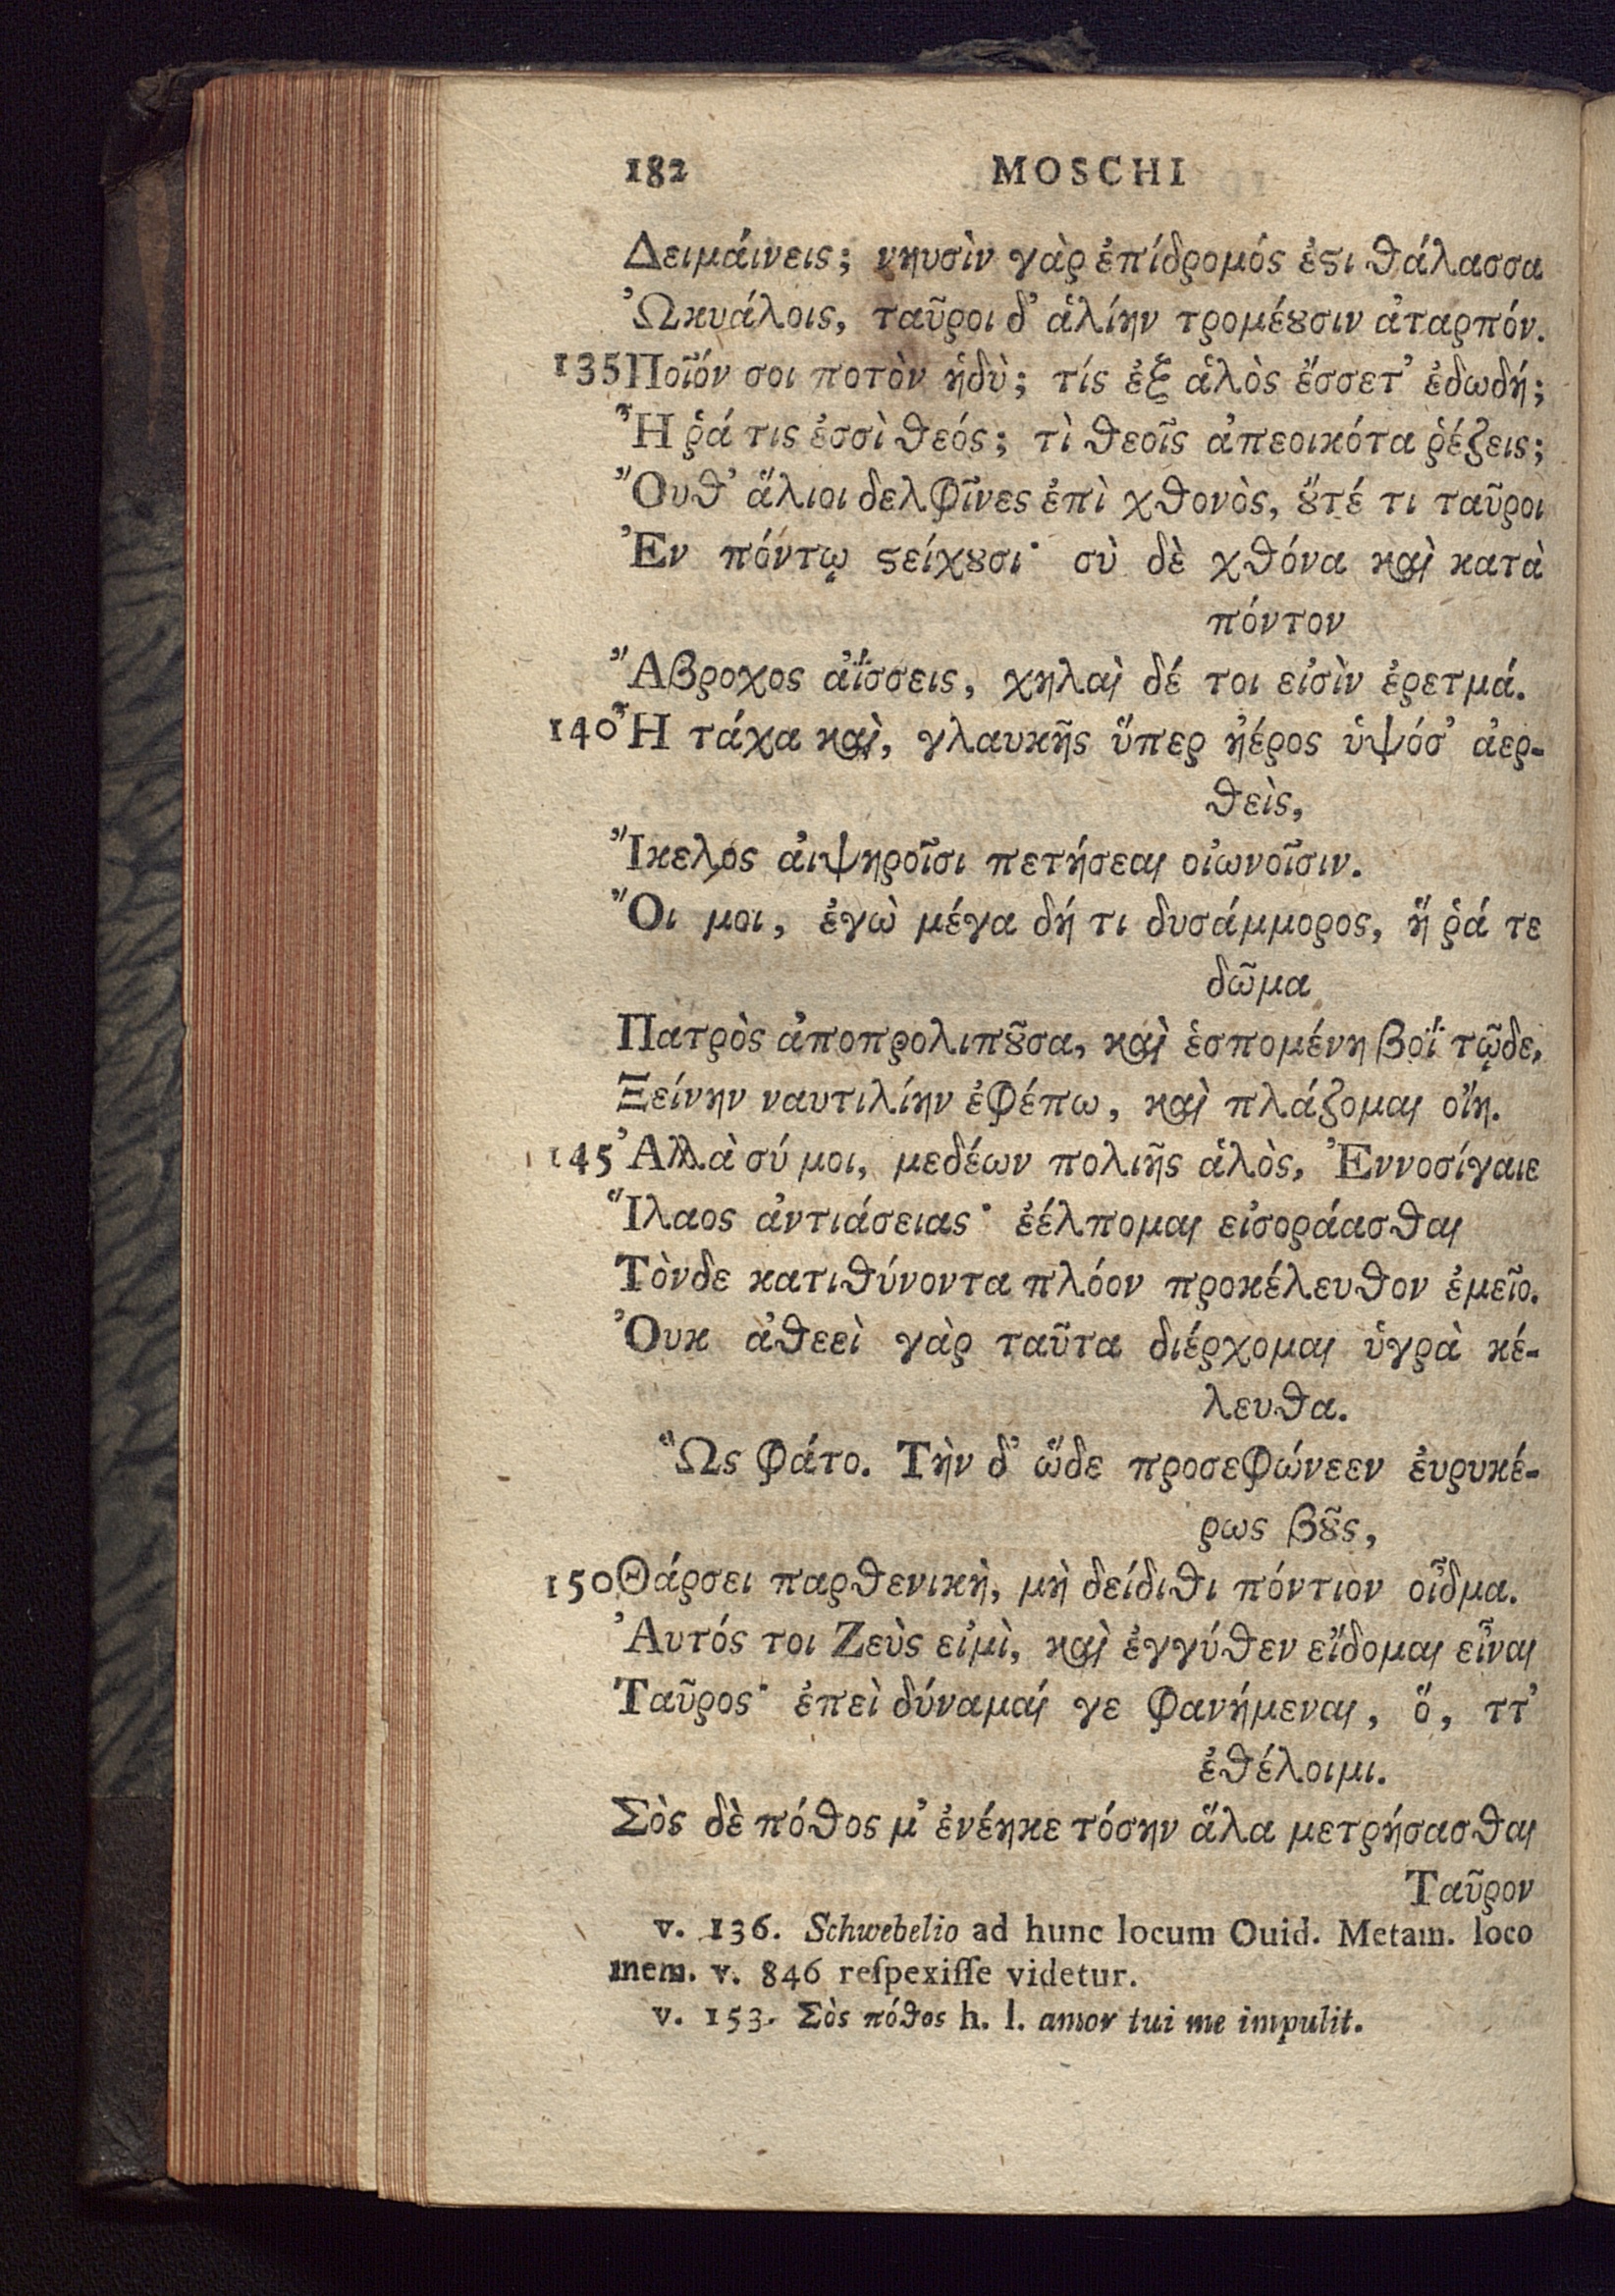 182 MOSCHI
Δειμάινεις; νηυσὶν γὰρ ἐπίδρομός ἐϛι θάλασσα
Ὠκυάλοις, ταῦροι δ' ἁλίην τρομέȣσιν ἀταρπόν.
135 Ποῖόν σοι ποτὸν ἡδὺ; τίς ἐξ ἁλὸς ἔσσετ' ἐδωδή;
Ἦ ῥά τις ἐσσὶ θεός; τὶ θεοῖς ἀπεοικότα ῥέζεις;
Ὄυθ' ἅλιοι δελφῖνες ἐπὶ χθονὸς, ȣ̓́τέ τι ταῦροι
Ἐν πόντῳ ϛείχȣσι· σὺ δὲ χθόνα καὶ κατὰ
πόντον
Ἄβροχος ἀΐσσεις, χηλαὶ δέ τοι εἰσὶν ἐρετμά.
140 Ἦ τάχα καὶ, γλαυκῆς ὕπερ ἠέρος ὑψόσ' ἀερ-
θεὶς,
Ἴκελος ἀιψηροῖσι πετήσεαι οἰωνοῖσιν.
Ὄι μοι, ἐγὼ μέγα δή τι δυσάμμορος, ἥ ῥά τε
δῶμα
Πατρὸς ἀποπρολιπȣ͂σα, καὶ ἑσπομένη βοῒ τῷδε,
Ξείνην ναυτιλίην ἐφέπω, καὶ πλάζομαι οἴη.
145 Ἀλλὰ σύ μοι, μεδέων πολιῆς ἁλὸς, Ἐννοσίγαιε
Ἵλαος ἀντιάσειας· ἐέλπομαι εἰσοράασθαι
Τὸνδε κατιθύνοντα πλόον προκέλευθον ἐμεῖο.
Ὀυκ ἀθεεὶ γὰρ ταῦτα διέρχομαι ὑγρὰ κέ-
λευθα.
Ὣς φάτο. Τὴν δ' ὧδε προσεφώνεεν ἐυρυκέ-
ρως βȣ͂ς,
150 Θάρσει παρθενικὴ, μὴ δείδιθι πόντιον οἶδμα.
Ἀυτός τοι Ζεὺς εἰμὶ, καὶ ἐγγύθεν εἴδομαι εἶναι
Ταῦρος· ἐπεὶ δύναμαί γε φανήμεναι, ὅ, ττ'
ἐθέλοιμι.
Σὸς δὲ πόθος μ' ἐνέηκε τόσην ἅλα μετρήσασθαι
Ταῦρον
v. 136. Schwebelio ad hunc locum Ouid. Metam. loco
mem. v. 846 reſpexiſſe videtur.
v. 153. Σὸς πόθος h. l. amor tui me impulit.